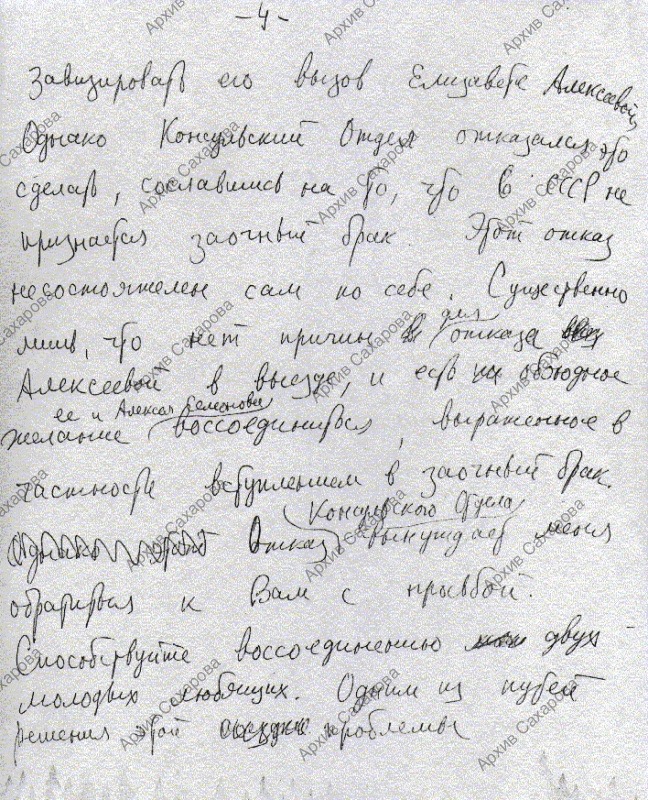 -4-
завизировать его вызов Елизавете Алексеевой.
Однако Консульский Отдел отказался это
сделать, сославшись на то, что в СССР не
признается заочный брак. Этот отказ
несостоятелен сам по себе. Существенно
для
лишь, что нет причин отказа
Алексеевой в выезде, и есть обоюдное
ее и Алексея Семенова
желание воссоединиться, выраженное в
частности вступлением в заочный брак.
Консульского Отдела
Отказ вынуждает меня
обратиться к Вам с просьбой.
Способствуйте воссоединению двух
молодых любящих. Одним из путей
решения этой проблемы
Архив Сахарова